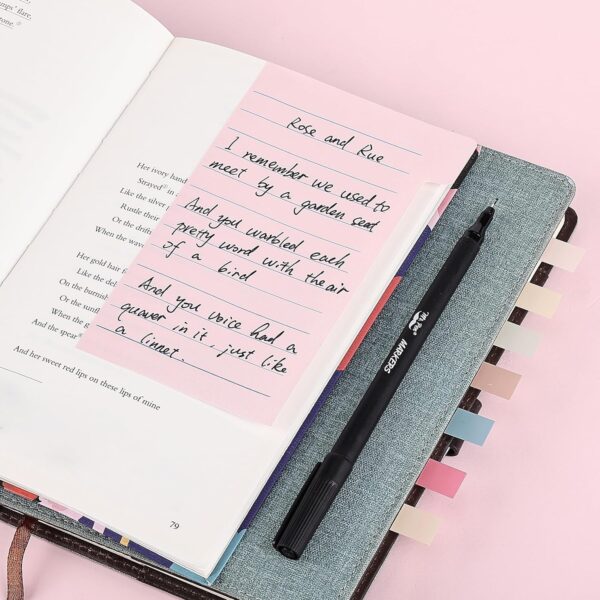 umps' flare,
Her ivory hand
Strayed in
Like the silver
Rustle their
Or the drift
When the wave
Her gold hair
Like the
On the burnish
Or the sunf
When the
And the spear
And her sweet red lips on these lips of mine
79
Rose and Rue
I remember we used to
meet by a garden seat
And you warbled each
pretty word with the air
of a bird
And you voice had a
quaver in it, just like
a linnet.
Mr. Pen
MARKERS